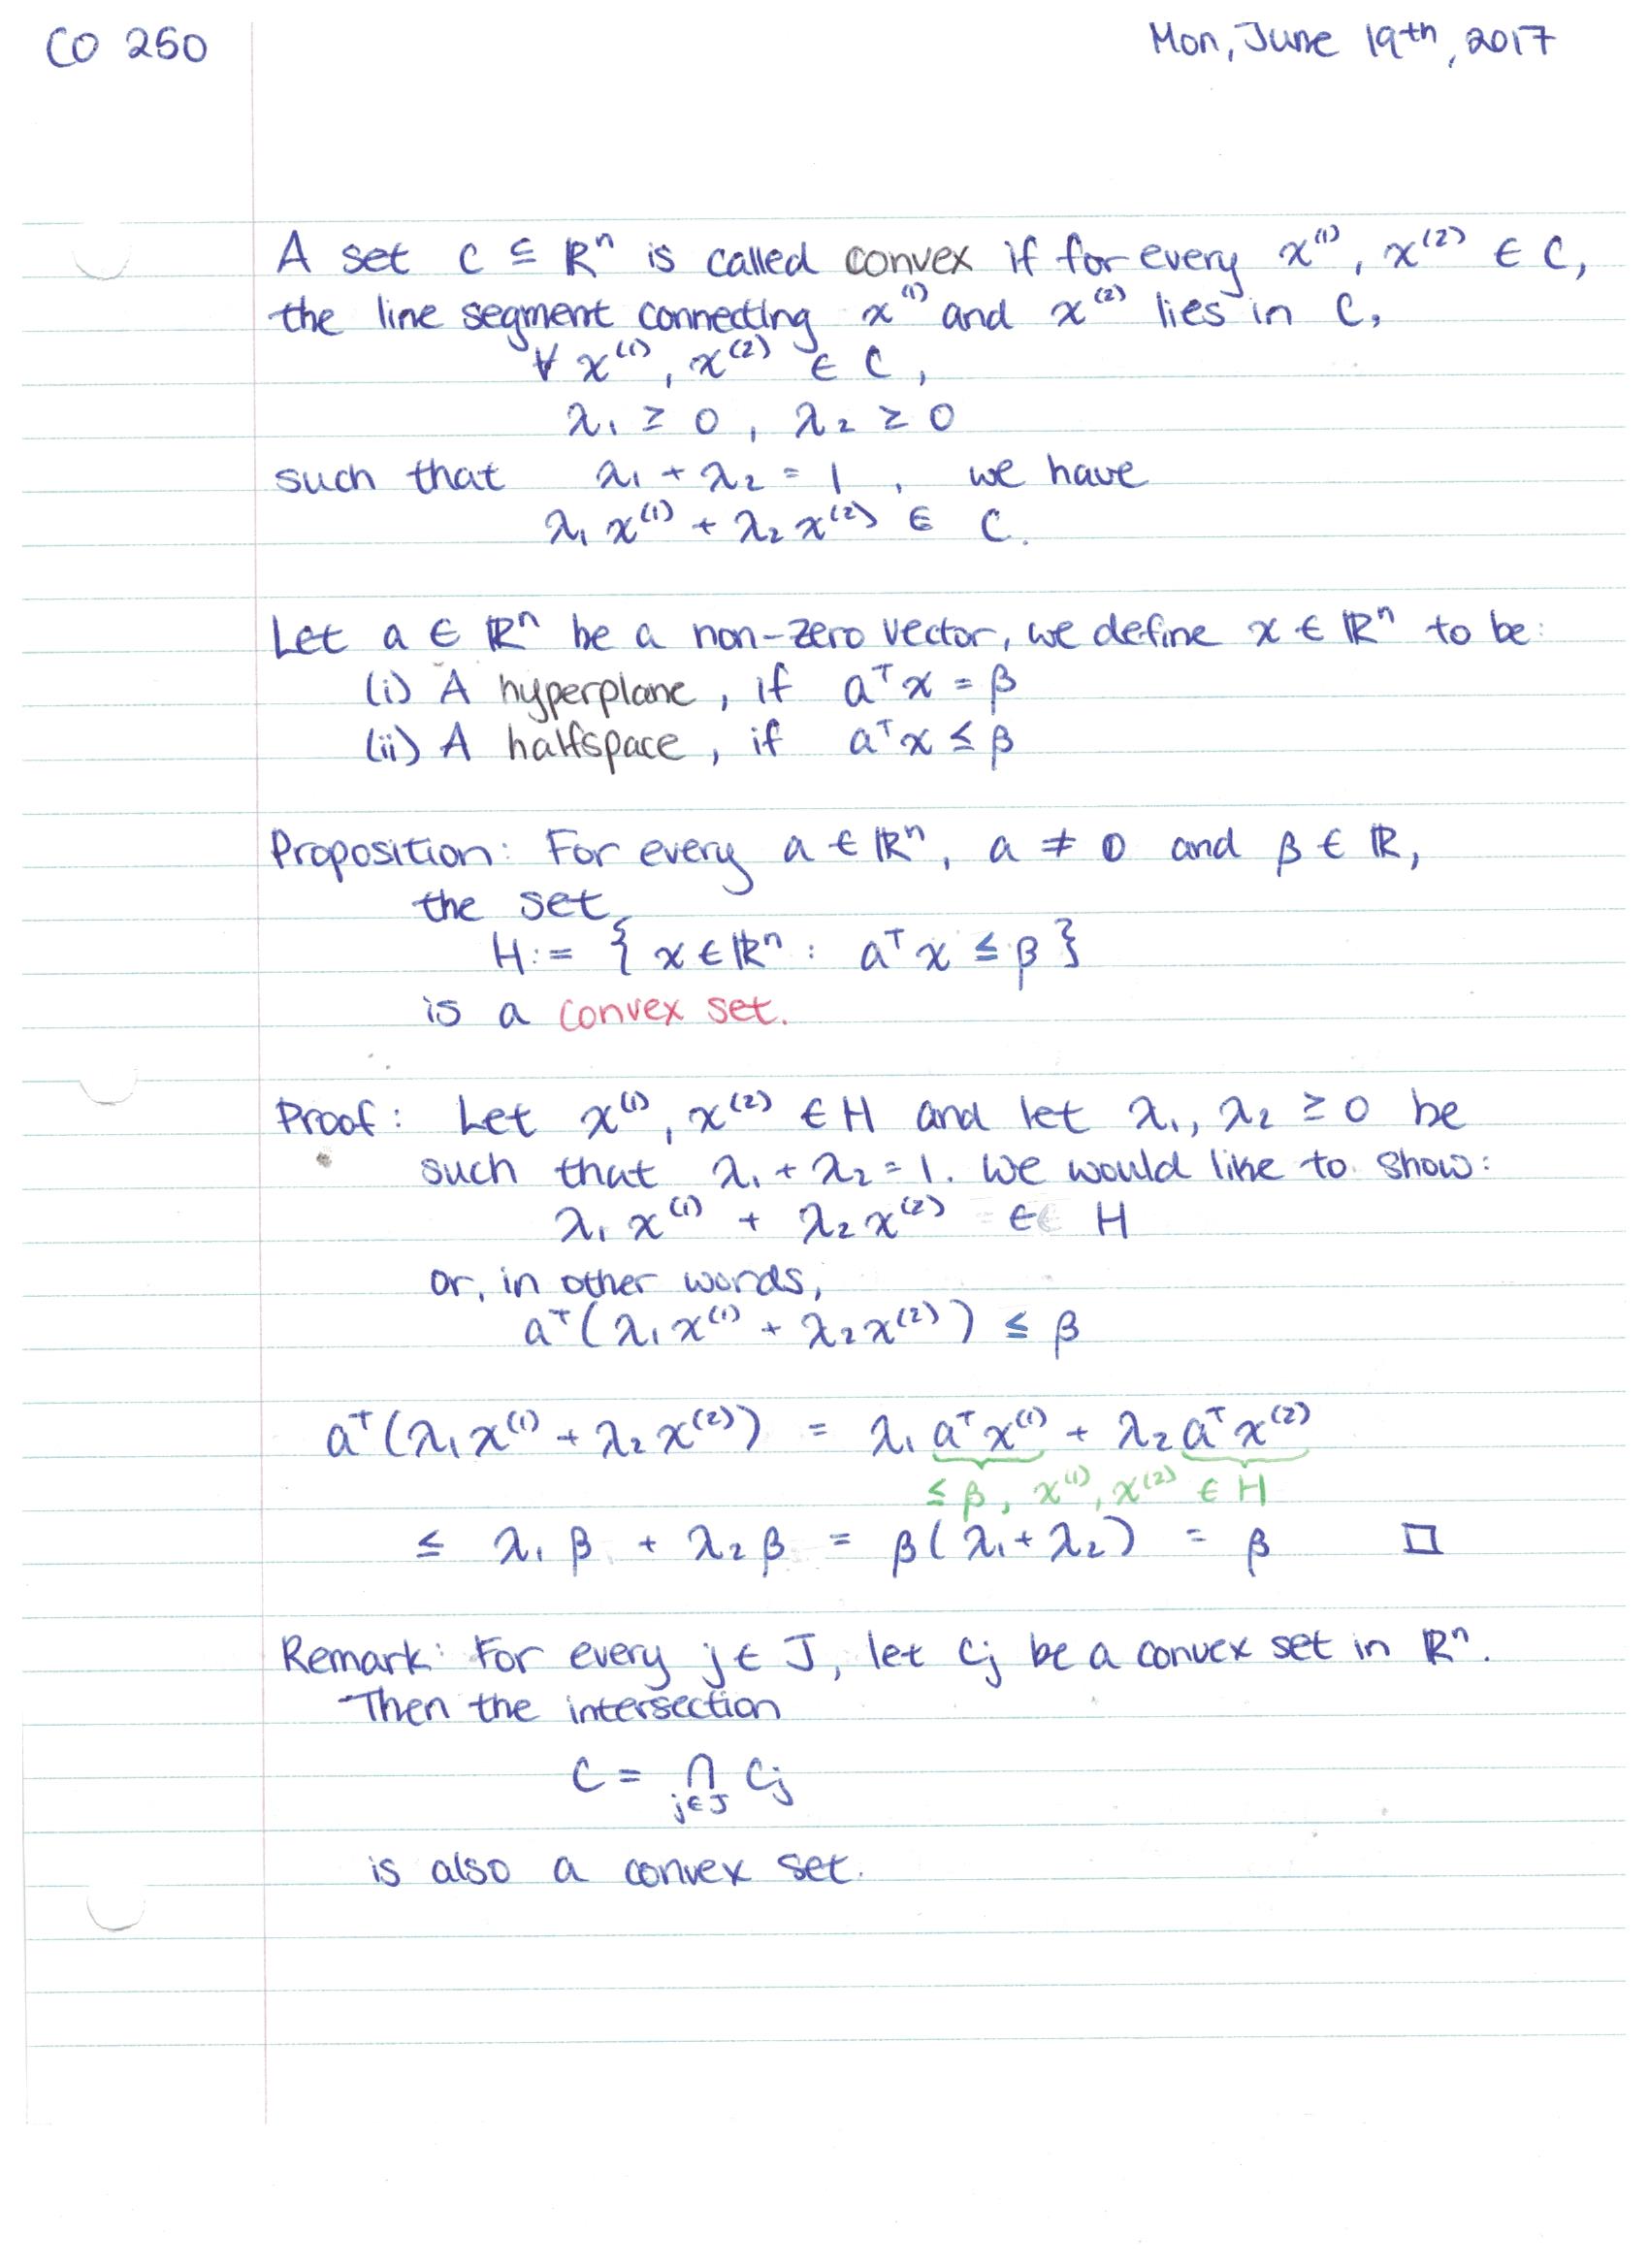 CO 250
Mon, June 19th, 2017
A set C ⊆ ℝⁿ is called convex if for every x⁽¹⁾, x⁽²⁾ ∈ C,
the line segment connecting x⁽¹⁾ and x⁽²⁾ lies in C,
∀ x⁽¹⁾, x⁽²⁾ ∈ C,
λ₁ ≥ 0, λ₂ ≥ 0
such that λ₁ + λ₂ = 1, we have
λ₁ x⁽¹⁾ + λ₂ x⁽²⁾ ∈ C.
Let a ∈ ℝⁿ be a non-zero vector, we define x ∈ ℝⁿ to be:
(i) A hyperplane, if aᵀx = β
(ii) A halfspace, if aᵀx ≤ β
Proposition: For every a ∈ ℝⁿ, a ≠ 0 and β ∈ ℝ,
the set
H := { x ∈ ℝⁿ : aᵀx ≤ β }
is a convex set.
Proof: Let x⁽¹⁾, x⁽²⁾ ∈ H and let λ₁, λ₂ ≥ 0 be
such that λ₁ + λ₂ = 1. We would like to show:
λ₁ x⁽¹⁾ + λ₂ x⁽²⁾ ∈ H
or, in other words,
aᵀ(λ₁ x⁽¹⁾ + λ₂ x⁽²⁾) ≤ β
aᵀ(λ₁ x⁽¹⁾ + λ₂ x⁽²⁾) = λ₁ aᵀx⁽¹⁾ + λ₂ aᵀx⁽²⁾
≤ β, x⁽¹⁾, x⁽²⁾ ∈ H
≤ λ₁ β + λ₂ β = β(λ₁ + λ₂) = β □
Remark: For every j ∈ J, let Cj be a convex set in ℝⁿ.
Then the intersection
C = ∩ Cj
j∈J
is also a convex set.